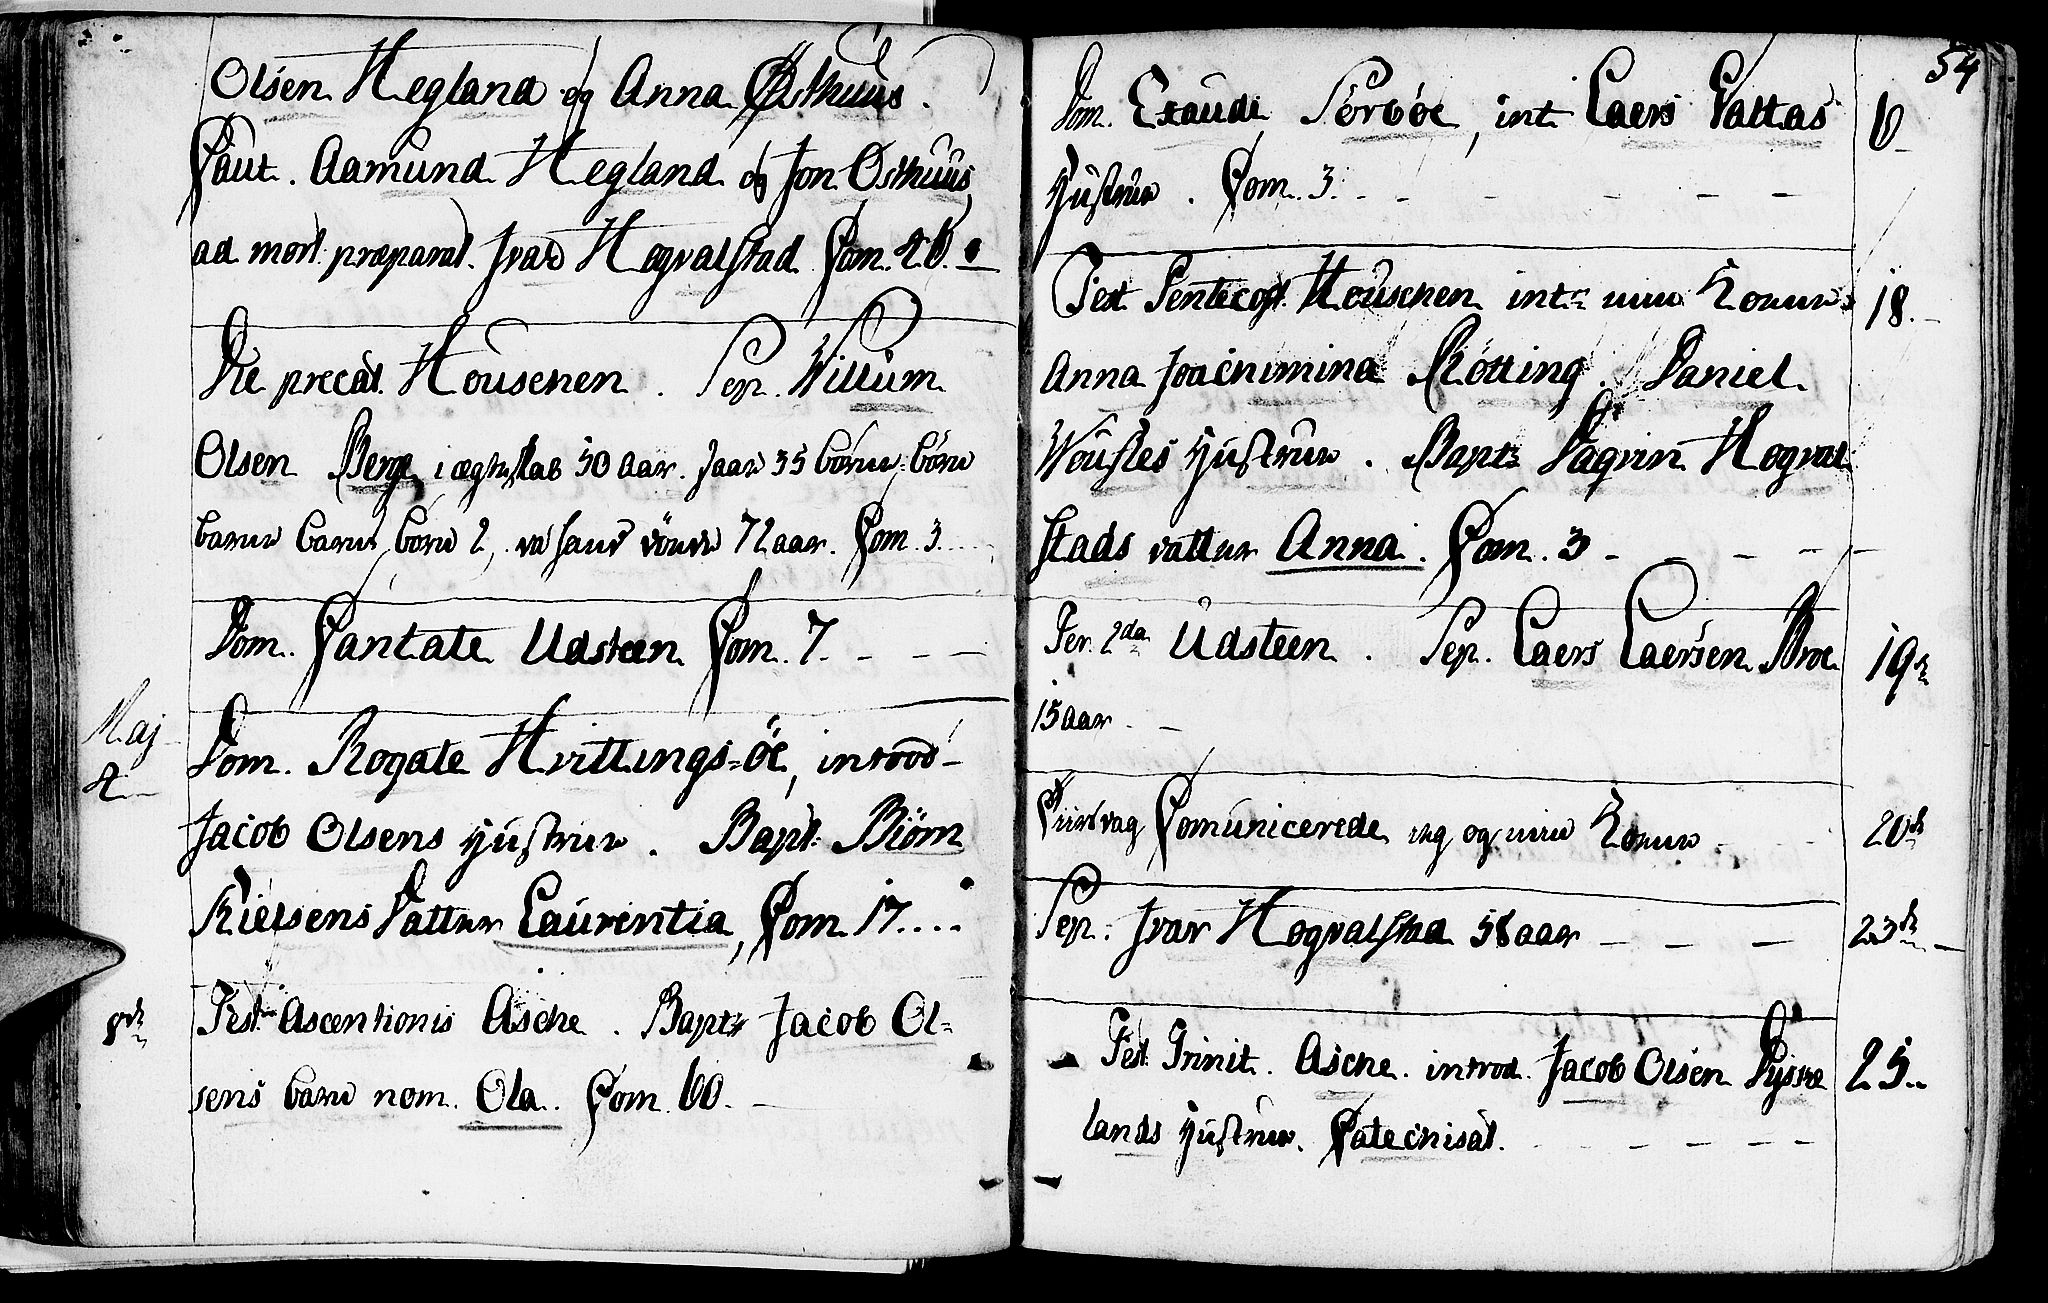 Olsen Hegland og Anna Østhuus.
Caut. Aamund Hegland og Jon Osthuus
ad mort præparat. Ivar Hogvalstad Com. 26.
Die precat. Houschen. Sep. Willum
Olsen Berge i ægteskab 50 aar. haar 35 börn, börne
barne barns börn 2, da hans döde 72 aar. Com. 3...
Dom. Cantate Udsteen Com. 7. - - -
Maj
4.
Dom. Rogate Hvittings-öe, introd-
Jacob Olsens hustrue. Bapt. Biörn
Nielsens datter Laurentia, Com 17....
8de
Fest Ascentionis Asche. Bapt. Jacob Ol-
sens barn nom. Ola. Com. 60. -
54
Dom. Exaudi Sörböe, int Laers Vattas
hustrue. Com. 3. - - - - -
Fest Pentecost. Houschen int. min Kone
18.
Anna Joachimina Rötting. Daniel
Woustes hustrue. Bapt. Dagvin Hogval
stads datter Anna. Com. 3 - - - - -
Fer. 2da Udsteen. Sep. Laers Laersen Broe
19de
15 aar. -
Tiirsdag Comunicerede ieg og min Kone
20de
Sep. Ivar Hogvalstad 58 aar - - -
23de
Fest Trinit. Asche. introd. Jacob Olsen Dyske
25.
lands hustrue. Catechisat. - - - - -